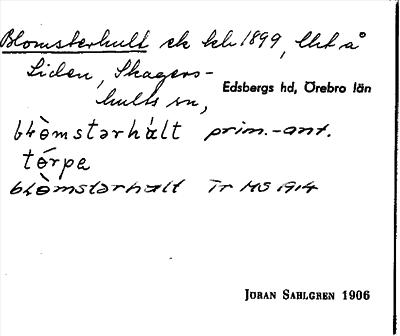 Blomsterhult ek kh 1899, lht å
Liden, Skagers-
hults sn,
Edsbergs hd, Örebro län
blòmstərhált prim.-ant.
tórpa
blòmstərhalt Tr HS 1914
JÖRAN SAHLGREN 1906